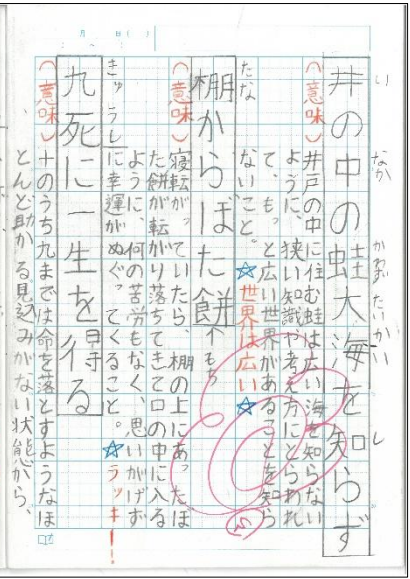 月 日( )
い なか かわず たいかい し
井の中の蛙大海を知らず
(意味)井戸の中に住む蛙は広い海を知らない
ように、狭い知識や考え方にとらわれ
て、もっと広い世界があることを知ら
ないこと。☆世界は広い☆
たな もち
棚からぼた餅
(意味)寝転がっていたら、棚の上にあったぼ
た餅が転がり落ちてきて口の中に入る
ように、何の苦労もなく、思いがけず
に幸運がめぐってくること。☆ラッキー!
きゅう し
九死に一生を得る
(意味)十のうち九までは命を落とすようなほ
とんど助かる見込みがない状態から、